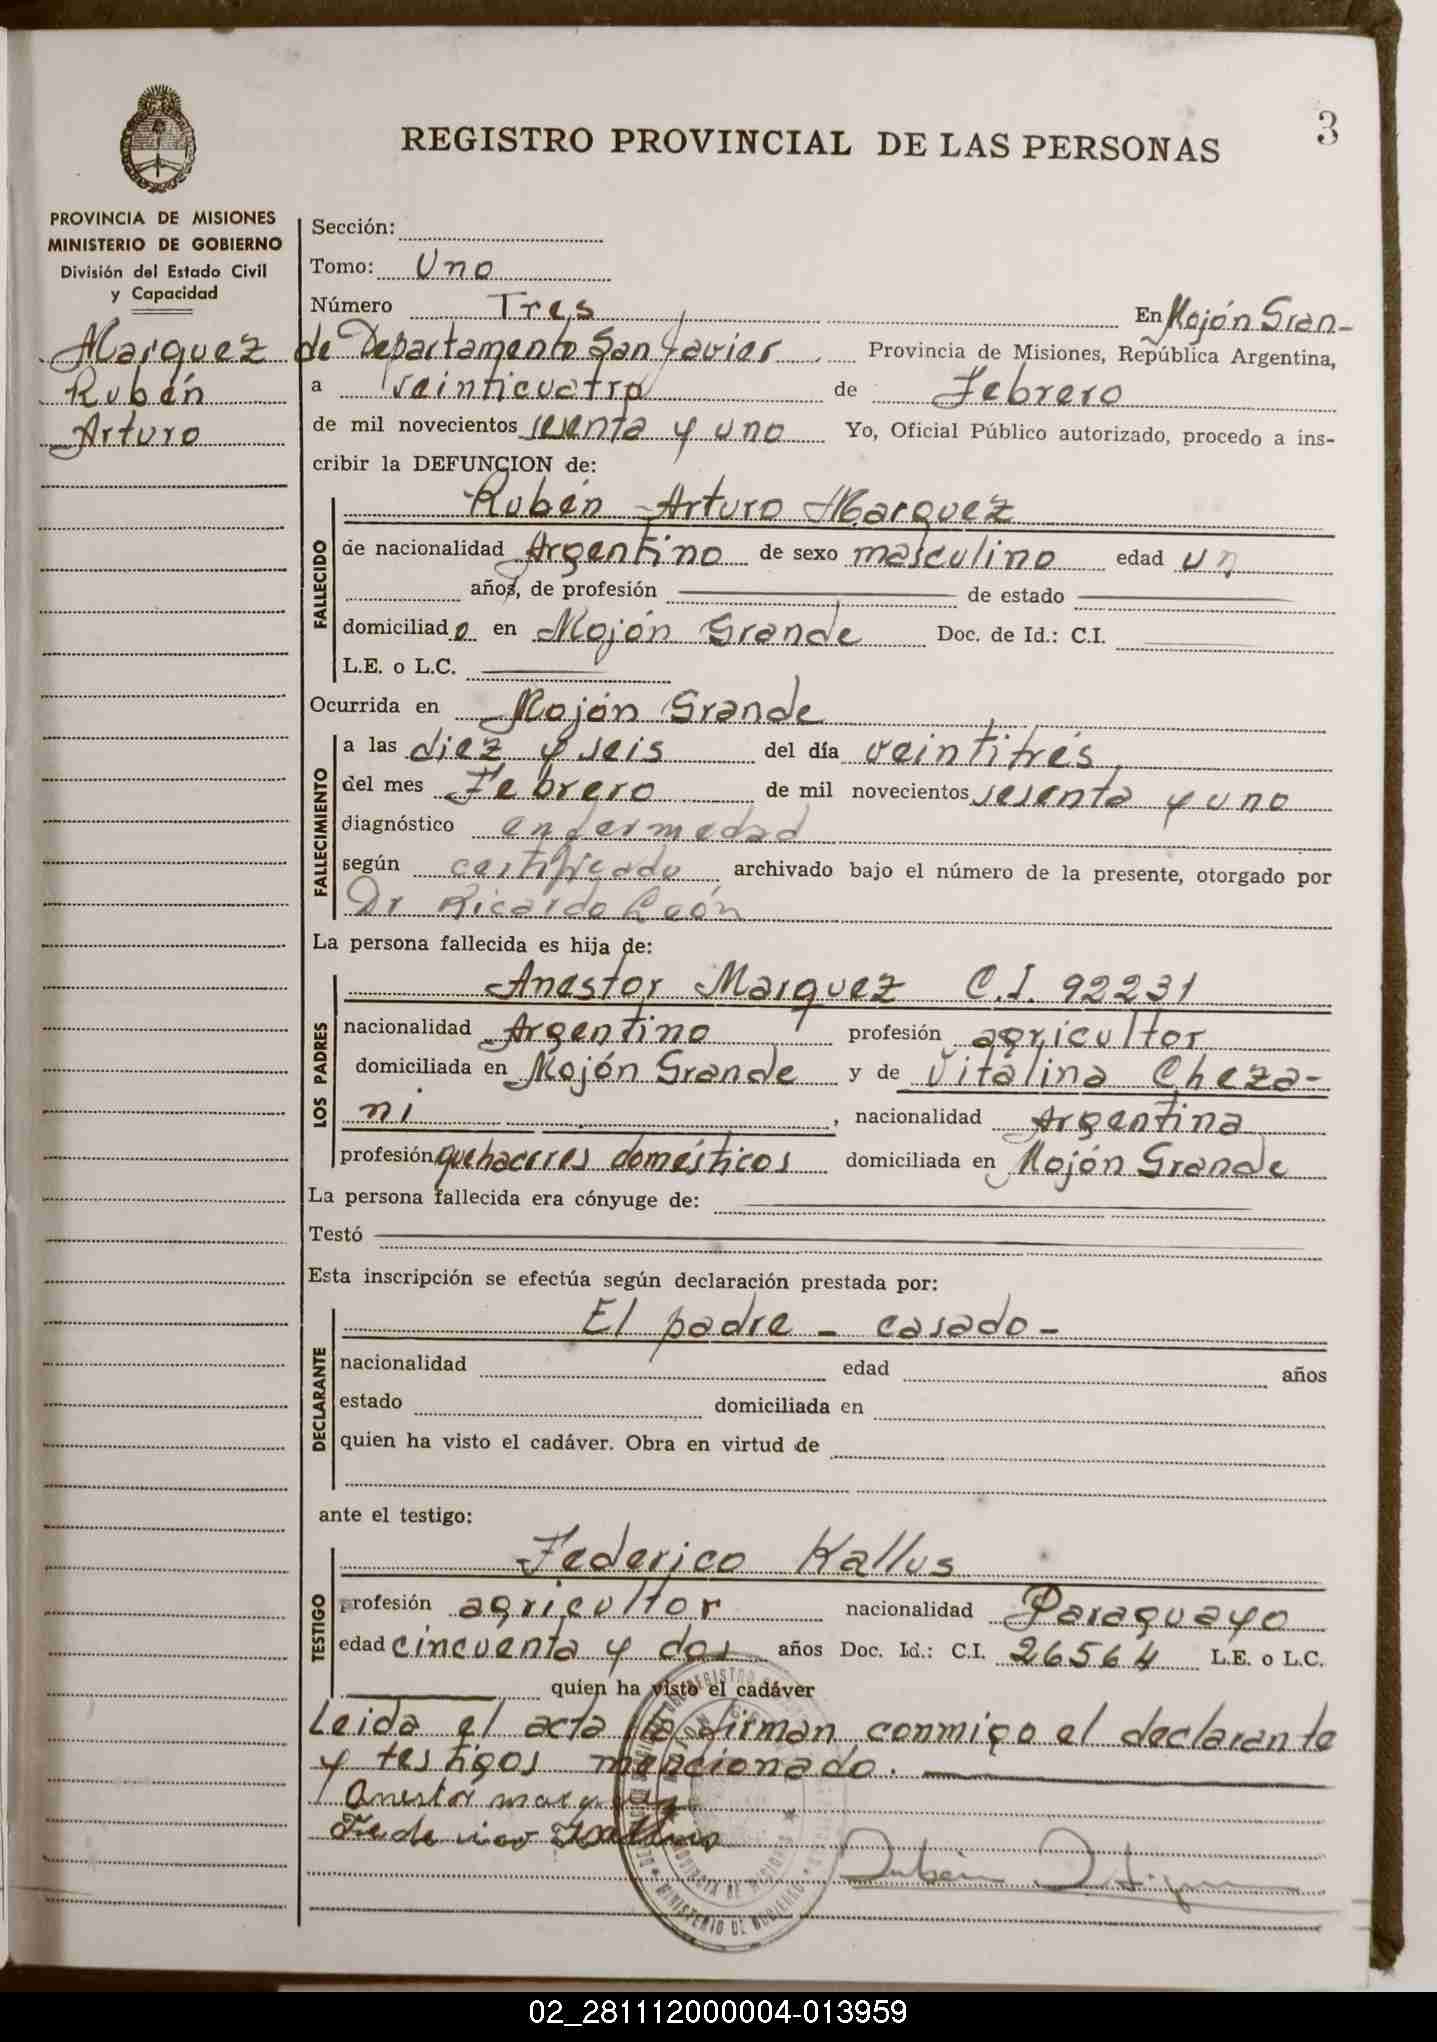 3
REGISTRO PROVINCIAL DE LAS PERSONAS
PROVINCIA DE MISIONES
MINISTERIO DE GOBIERNO
División del Estado Civil
y Capacidad
Marquez
Rubén
Arturo
Sección:
Tomo: Uno
Número Tres En Mojón Gran-
de Departamento San Javier Provincia de Misiones, República Argentina,
a veinticuatro de Febrero
de mil novecientos sesenta y uno Yo, Oficial Público autorizado, procedo a ins-
cribir la DEFUNCION de:
Rubén Arturo Marquez
FALLECIDO
de nacionalidad Argentino de sexo masculino edad un
años, de profesión de estado
domiciliado en Mojón Grande Doc. de Id.: C.I.
L.E. o L.C.
Ocurrida en Mojón Grande
FALLECIMIENTO
a las diez y seis del día veintitrés
del mes Febrero de mil novecientos sesenta y uno
diagnóstico enfermedad
según certificado archivado bajo el número de la presente, otorgado por
Dr Ricardo León
La persona fallecida es hija de:
LOS PADRES
Anestor Marquez C.I. 92231
nacionalidad Argentino profesión agricultor
domiciliada en Mojón Grande y de Vitalina Cheza-
ni, nacionalidad Argentina
profesión quehaceres domésticos domiciliada en Mojón Grande
La persona fallecida era cónyuge de:
Testó
Esta inscripción se efectúa según declaración prestada por:
DECLARANTE
El padre - casado -
nacionalidad edad años
estado domiciliada en
quien ha visto el cadáver. Obra en virtud de
ante el testigo:
TESTIGO
Federico Kallus
profesión agricultor nacionalidad Paraguayo
edad cincuenta y dos años Doc. Id.: C.I. 26564 L.E. o L.C.
quien ha visto el cadáver
Leida el acta la firman conmigo el declarante
y testigos mencionado.
Anestor marquez
Federico Kallus
MINISTERIO DE GOBIERNO
PROVINCIA DE MISIONES
02_281112000004-013959